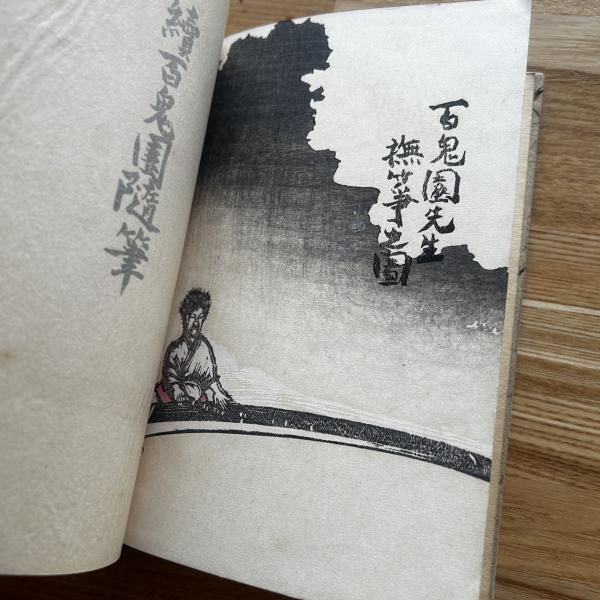 百鬼園先生
撫箏之圖
續百鬼園隨筆